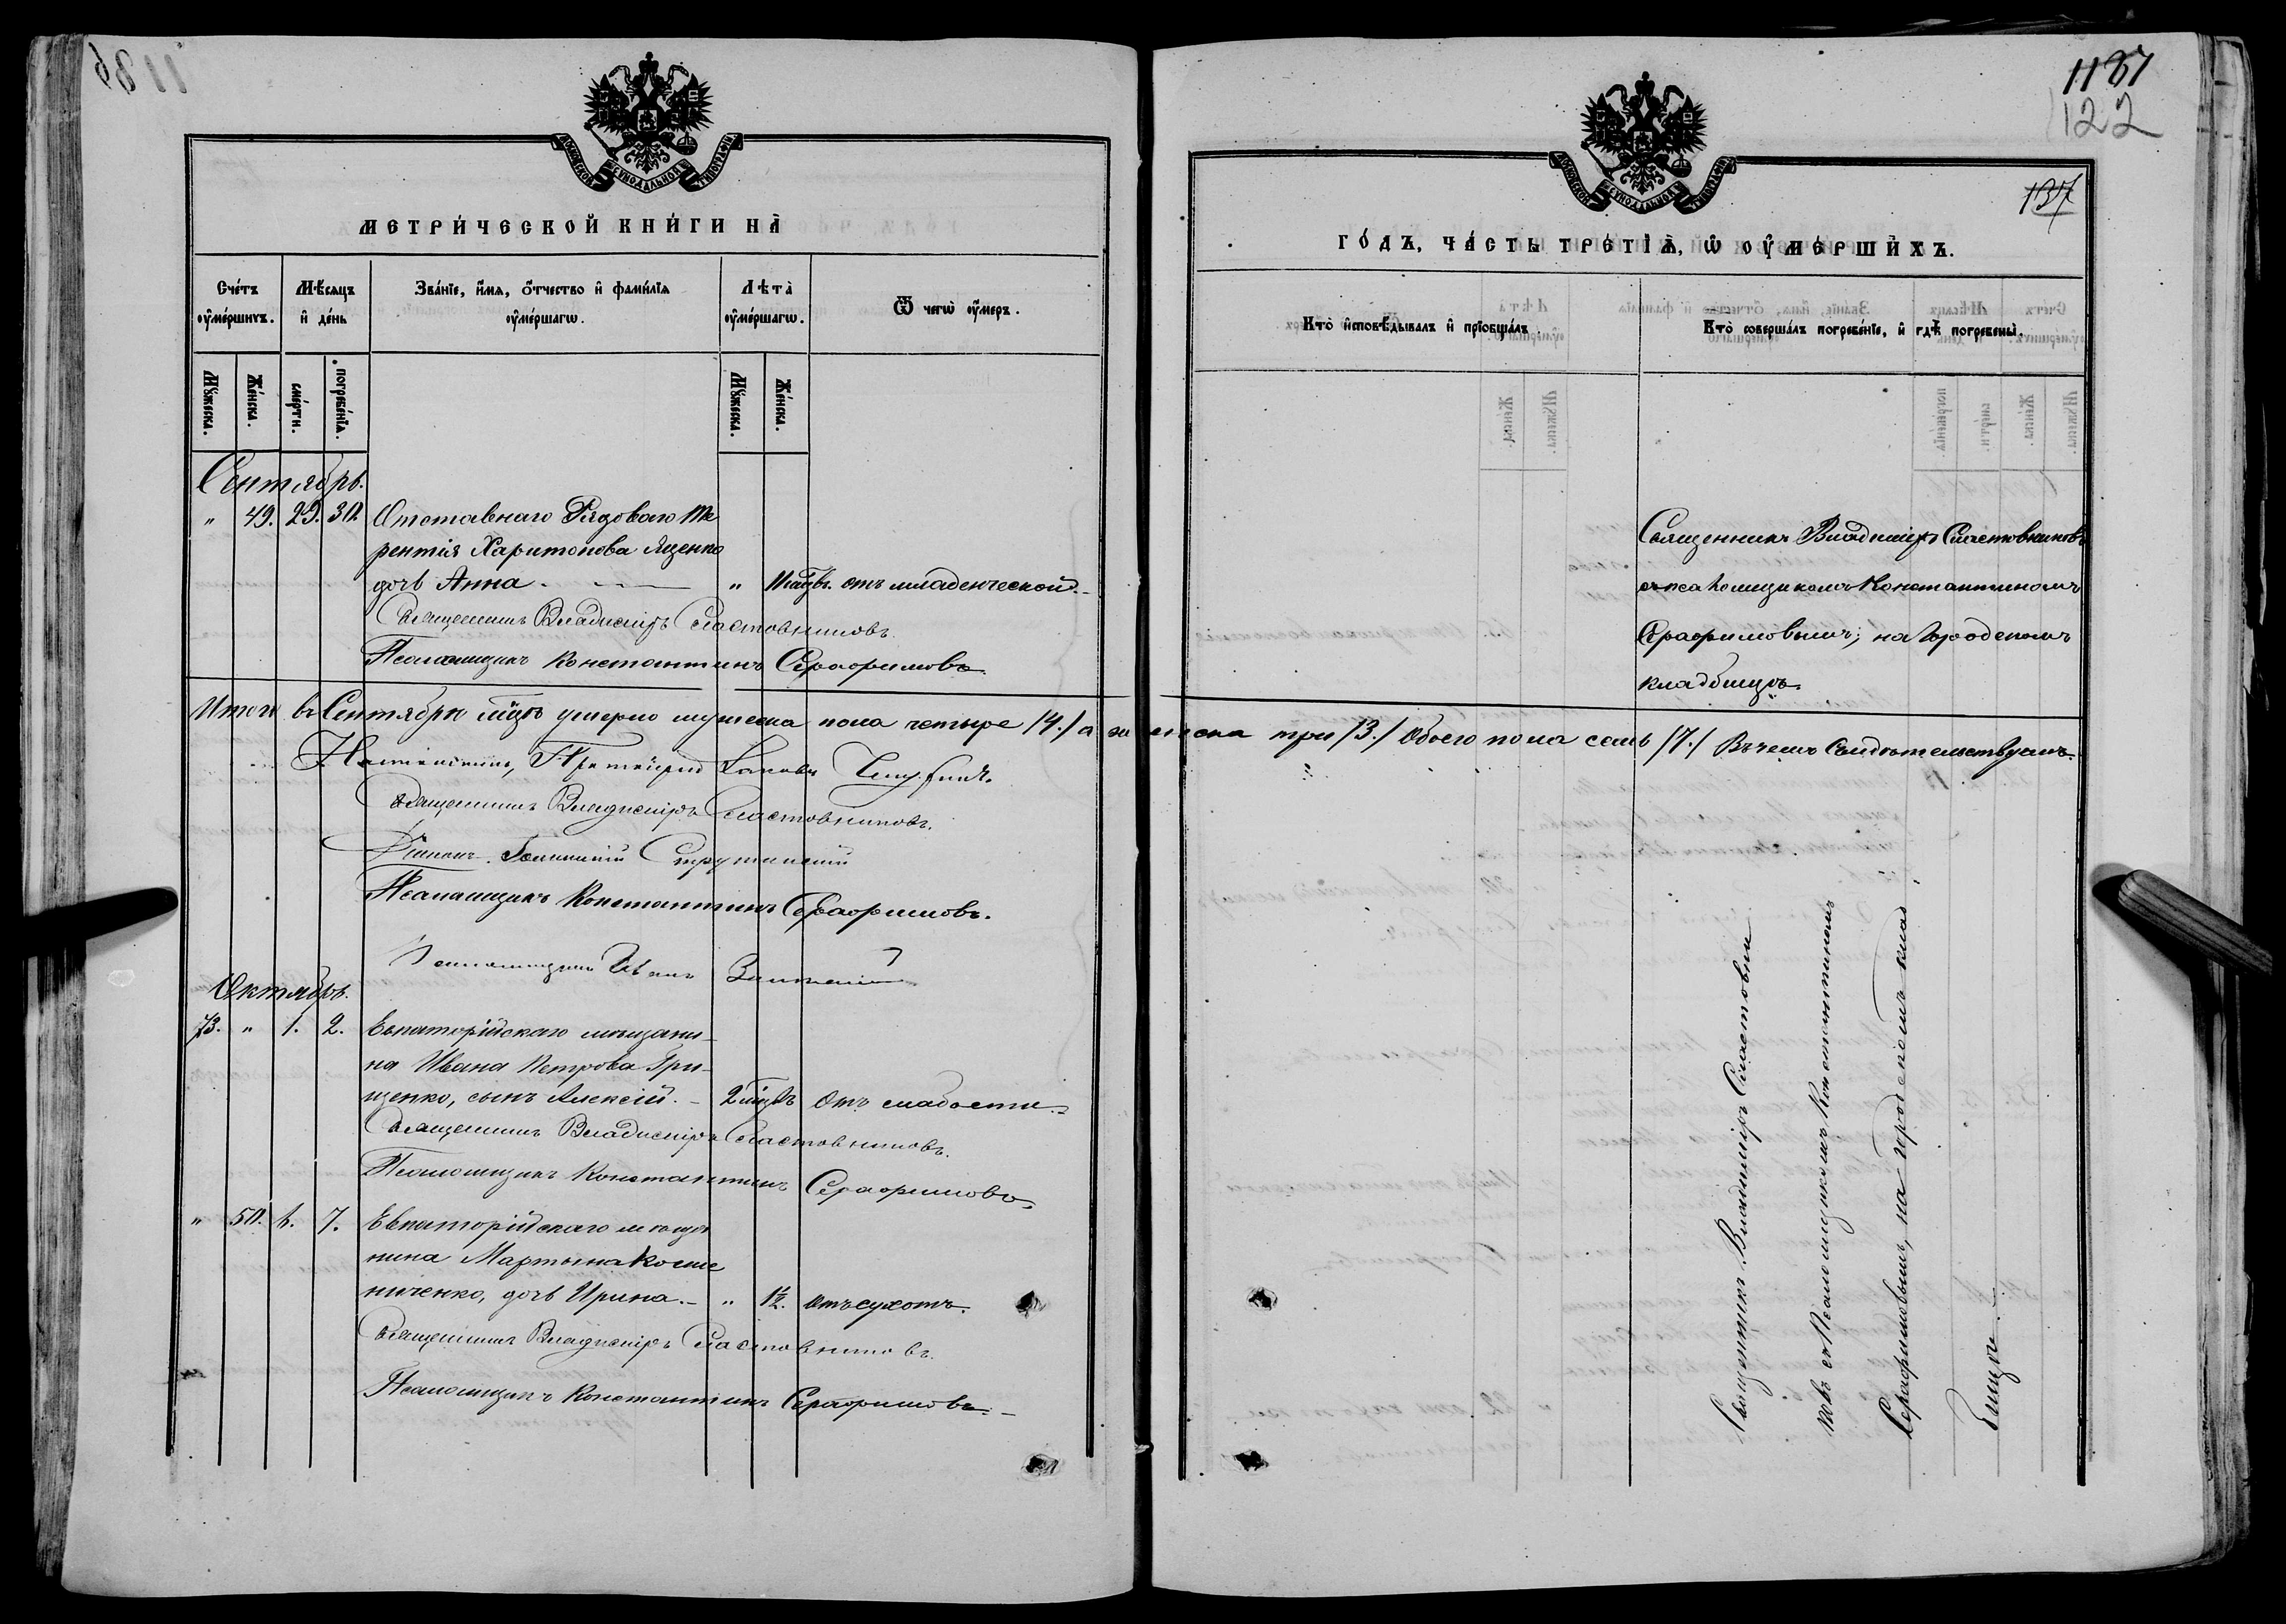 1187
122
137
МОСКОВСКОЙ СѴНОДАЛЬНОЙ ТИПОГРАФІИ
МЕТРИ́ЧЕСКОЙ КНИ́ГИ НА̀
Сче́тъ оу҆ме́ршихъ.
Мѣ́сяцъ и҆ де́нь
Зва́нїе, и҆́мя, о҆́тчество и҆ фами́лїя оу҆ме́ршагѡ.
Лѣта̀ оу҆ме́ршагѡ.
Ѿ чегѡ̀ оу҆́меръ.
Мꙋ́жеска.
Же́нска.
сме́рти.
погребе́нїя.
Мꙋ́жеска.
Же́нска.
Сентябрь.
" 49. 29. 30. Отставнаго Рядоваго Те
рентія Харитонова Яценко
дочь Анна. " отъ младенческой.
Священникъ Владиміръ Сластовниковъ.
Псаломщикъ Константинъ Серафимовъ.
Итого въ Сентябрѣ мцѣ умерло мужеска пола четыре /4./ а женска три /3./ Обоего пола семь /7./ Въ чемъ Свидѣтельствуемъ.
Протоіерей
Священникъ Владиміръ Сластовниковъ.
Діаконъ
Псаломщикъ Константинъ Серафимовъ.
Псаломщикъ Иванъ
Октябрь.
73. " 1. 2. Евпаторійскаго мѣщани-
на Ивана Петрова Гри-
щенко, сынъ Алексій. - 2 мцъ Отъ слабости.
Священникъ Владиміръ Сластовниковъ.
Псаломщикъ Константинъ Серафимовъ.
" 50. 6. 7. Евпаторійскаго мѣща
нина Мартына Колес
ниченко, дочь Ирина. - " 1½. Отъ сухотъ.
Священникъ Владиміръ Сластовниковъ.
Псаломщикъ Константинъ Серафимовъ. -
МОСКОВСКОЙ СѴНОДАЛЬНОЙ ТИПОГРАФІИ
ГО́ДЪ, ЧА́СТЬ ТРЕ́ТЇѦ, Ѡ҆ ОУ҆МЕ́РШИХЪ.
Кто̀ и҆сповѣ́дывалъ и҆ прїобща́лъ.
Кто̀ соверша́лъ погребе́нїе, и҆ гдѣ̀ погребены̀.
Священникъ Владиміръ Сластовниковъ
съ псаломщикомъ Константиномъ
Серафимовымъ; на Городскомъ
кладбищѣ.
Священникъ Владиміръ Сластовни
ковъ съ Псаломщикомъ Константиномъ
Серафимовымъ, на городскомъ клад
бищѣ.